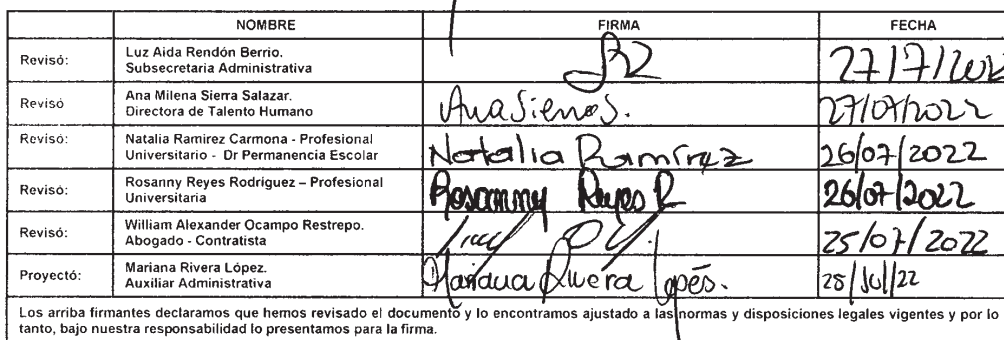 NOMBRE FIRMA FECHA
Revisó: Luz Aida Rendón Berrio.
Subsecretaria Administrativa
27/7/2022
Revisó Ana Milena Sierra Salazar.
Directora de Talento Humano
Ana Sierra S. 27/07/2022
Revisó: Natalia Ramirez Carmona - Profesional
Universitario - Dr Permanencia Escolar
Natalia Ramírez 26/07/2022
Revisó: Rosanny Reyes Rodríguez – Profesional
Universitaria
Rosanny Reyes R 26/07/2022
Revisó: William Alexander Ocampo Restrepo.
Abogado - Contratista
25/07/2022
Proyectó: Mariana Rivera López.
Auxiliar Administrativa
Mariana Rivera López. 25/Jul/22
Los arriba firmantes declaramos que hemos revisado el documento y lo encontramos ajustado a las normas y disposiciones legales vigentes y por lo
tanto, bajo nuestra responsabilidad lo presentamos para la firma.